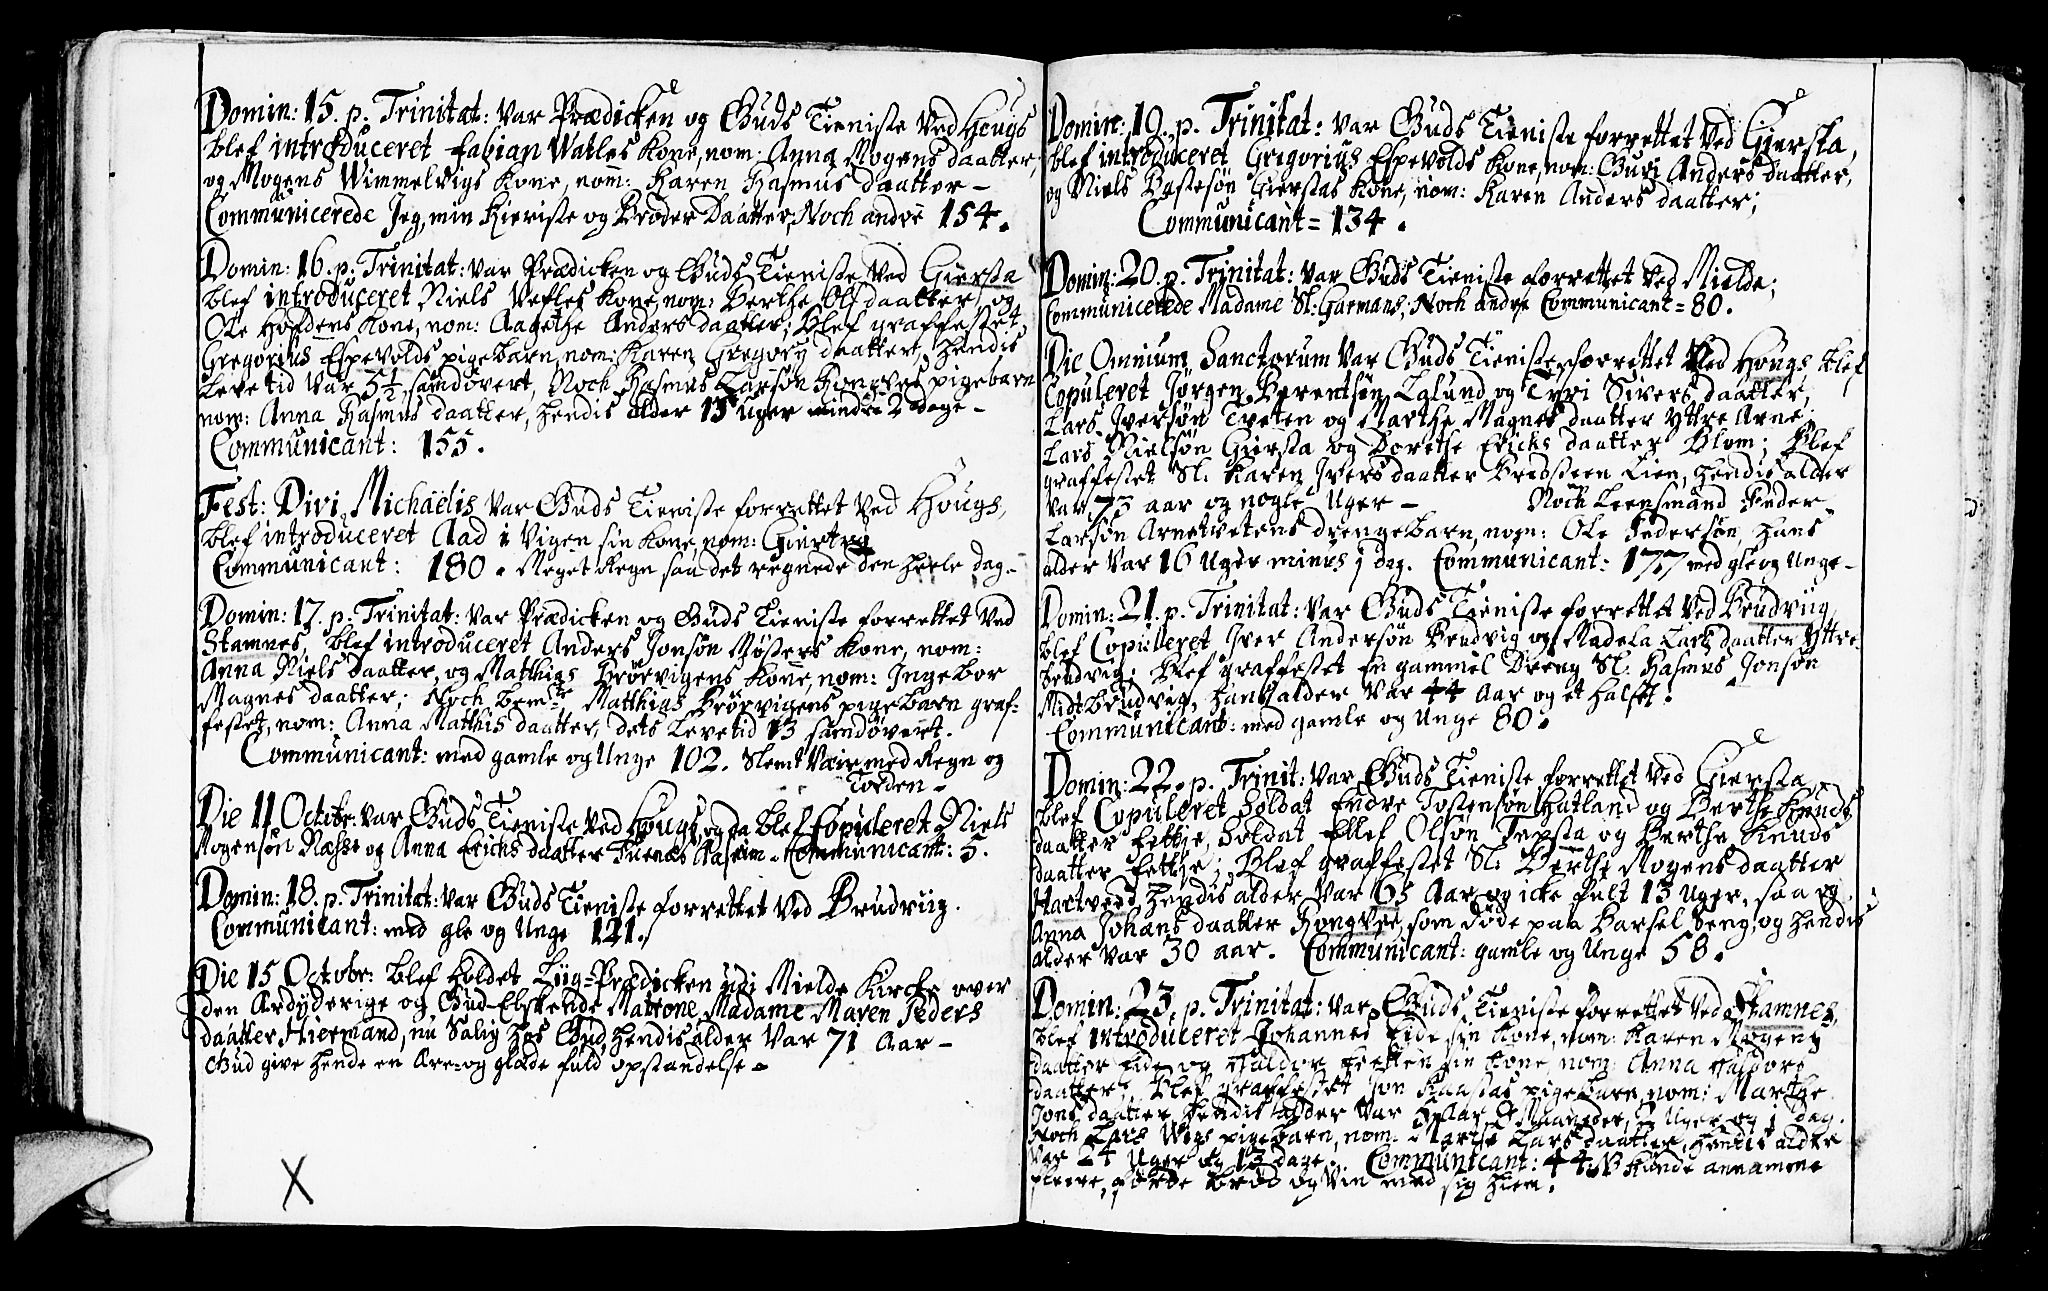 Domin: 15. p. Trinitat: var Prædicken og Guds Tieniste ved Hougs
blef introduceret Fabian Watles kone, nom: Anna Mogens daatter,
og Mogens Wimmelvigs kone, nom: Karen Rasmus daatter -
Communicerede Jeg, min Kieriste og Broder Daatter, Noch andre 154.
Domin: 16. p. Trinitat: var Prædicken og Guds Tieniste ved Giersta
blef introduceret Niels kone, nom: Berthe Ols daatter, og
Ole Hofdens kone, nom: Aagethe Anders daatter; blef graffestet
Gregorius Espevolds pigebarn, nom: Karen Gregory daatter, hendis
Leve tid var 5½ samdøvert, Noch Rasmus Larsøn pigebarn
nom: Anna Rasmus daatter, hendis alder 13 Uger mindre 2 dage -
Communicant: 155.
Fest: Divi Michaelis var Guds Tieniste forrettet ved Hougs,
blef introduceret Aad i Vigen sin kone, nom: Giertry
Communicant: 180. Meget Regn saa det regnede den heele dag -
Domin: 17. p. Trinitat: var Prædicken og Guds Tieniste forrettet ved
Stamnes, blef introduceret Anders Jonsøn kone, nom:
Anna Niels daatter, og Matthias Brørvigens kone, nom: Ingebor
Magnes daatter; Noch bem:te Matthias Brørvigens pigebarn graf-
festet, nom: Anna Mathis daatter, dets Levetid 13 samdøvert.
Communicant: med gamle og Unge 102. Slemt Væir med Regn og
Torden -
Die 11 Octobr: var Guds Tieniste ved Hougs, og da blef Copuleret Niels
Mogensøn Næsse og Anna Erichs daatter Communicant: 5.
Domin: 18. p. Trinitat: var Guds Tieniste forrettet ved Brudviig.
Communicant: med gle og Unge 121.
Die 15 Octobr: blef holdet Liig-Prædicken udi Mielde Kircke over
den Ærdyderige og Gud-Elskende Matrone Madame Maren Peders
daatter Hiermand, nu Salig hos Gud, hendis alder var 71 Aar -
Gud give hende en Ære- og glæde fuld opstandelse -
X
Domin: 19. p. Trinitat: var Guds Tieniste forrettet ved Giersta,
blef introduceret Gregorius Espevolds kone, nom: Guri Anders daatter,
og Niels Gierstas kone, nom: Karen Anders daatter;
Communicant = 134.
Domin: 20. p. Trinitat: var Guds Tieniste forrettet ved Mielde;
Communicerede Madame Sl: Garmans; Noch andre Communicant = 80.
Die Omnium Sanctorum var Guds Tieniste forrettet ved Hougs blef
Copuleret Jørgen Berentsøn Lalund og Tyri Sivers daatter,
Lars Iversøn Tveten og Marthe Magnes daatter Yttre Arne,
Lars Nielsøn Giersta og Dorethe Erichs daatter Blom; Blef
graffestet Sl: Karen Ivers daatter Lien, hendis alder
var 73 aar og nogle Uger - Noch Leensmand Peder
Larsøn Arnetvetens drengebarn, nom: Ole Pedersøn, hans
alder var 16 Uger minus j dag. Communicant: 177 med gle og Unge -
Domin: 21. p. Trinitat: var Guds Tieniste forrettet ved Brudviig,
blef Copuleret Iver Andersøn Brudvig og Madela Lars daatter Yttre-
brudvig; Blef graffestet En gammel Dreng Sl: Rasmus Jonsøn
Midtbrudvig, hans alder var 44 Aar og et halft.
Communicant: med gamle og Unge 80.
Domin: 22. p. Trinit: var Guds Tieniste forrettet ved Giersta
blef Copuleret Soldat Endre Tostensøn Hatland og Berthe Knuds
daatter Fettje, Soldat Ellef Olsøn Tepsta og Berthe Knuds
daatter Fettje; Blef graffestet Sl: Berthe Mogens daatter
Hartveed, hendis alder var 65 Aar og icke fult 13 Uger, saa og
Anna Johans daatter som døde paa Barsel Seng, og hendis
alder var 30 aar. Communicant: gamle og Unge 58.
Domin: 23. p. Trinitat: var Guds Tieniste forrettet ved Stamnes,
blef introduceret Johannes Eide sin kone, nom: Karen Mogens
daatter Eide og Haldor sin kone, nom: Anna Haldors
daatter; Blef graffestet Jon pigebarn, nom: Marthe
Jons daatter, hendis alder var Aar, Maaneder, 2 Uger og j dag.
Noch Lars Wigs pigebarn, nom: Marthe Lars daatter, hendis alder
var 24 Uger og 13 dage. Communicant: 44. NB Kunde annamme
fleere, førde brød og Vin med sig hiem.